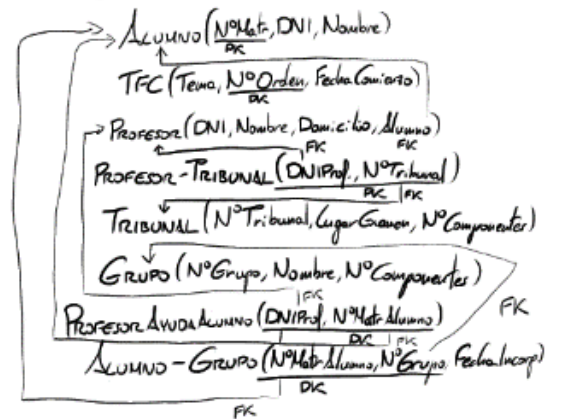 ALUMNO (NºMatr, DNI, Nombre)
PK
TFC (Tema, NºOrden, FechaComienzo)
PK
PROFESOR (DNI, Nombre, Domicilio, Alumno)
FK FK
PROFESOR-TRIBUNAL (DNIProf., NºTribunal)
PK FK
TRIBUNAL (NºTribunal, LugarExamen, NºComponentes)
GRUPO (NºGrupo, Nombre, NºComponentes)
FK FK
PROFESOR AYUDA ALUMNO (DNIProf, NºMatrAlumno)
PK FK
ALUMNO-GRUPO (NºMatrAlumno, NºGrupo, FechaIncorp)
PK
FK